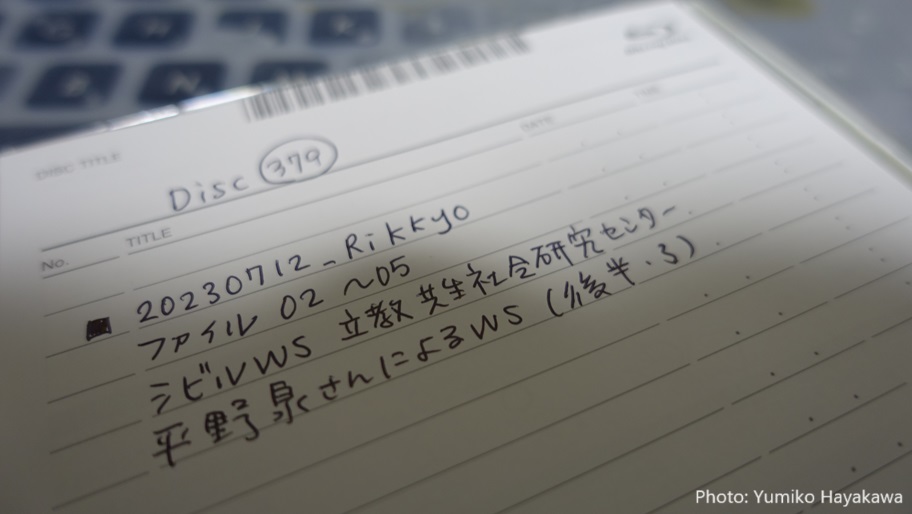 DISC TITLE
Disc 379
DATE
No.
TITLE
20230712_Rikkyo
ファイル 02 ~05
シビルWS 立教 共生社会研究センター
平野 泉さんによるWS (後半.3)
Photo: Yumiko Hayakawa